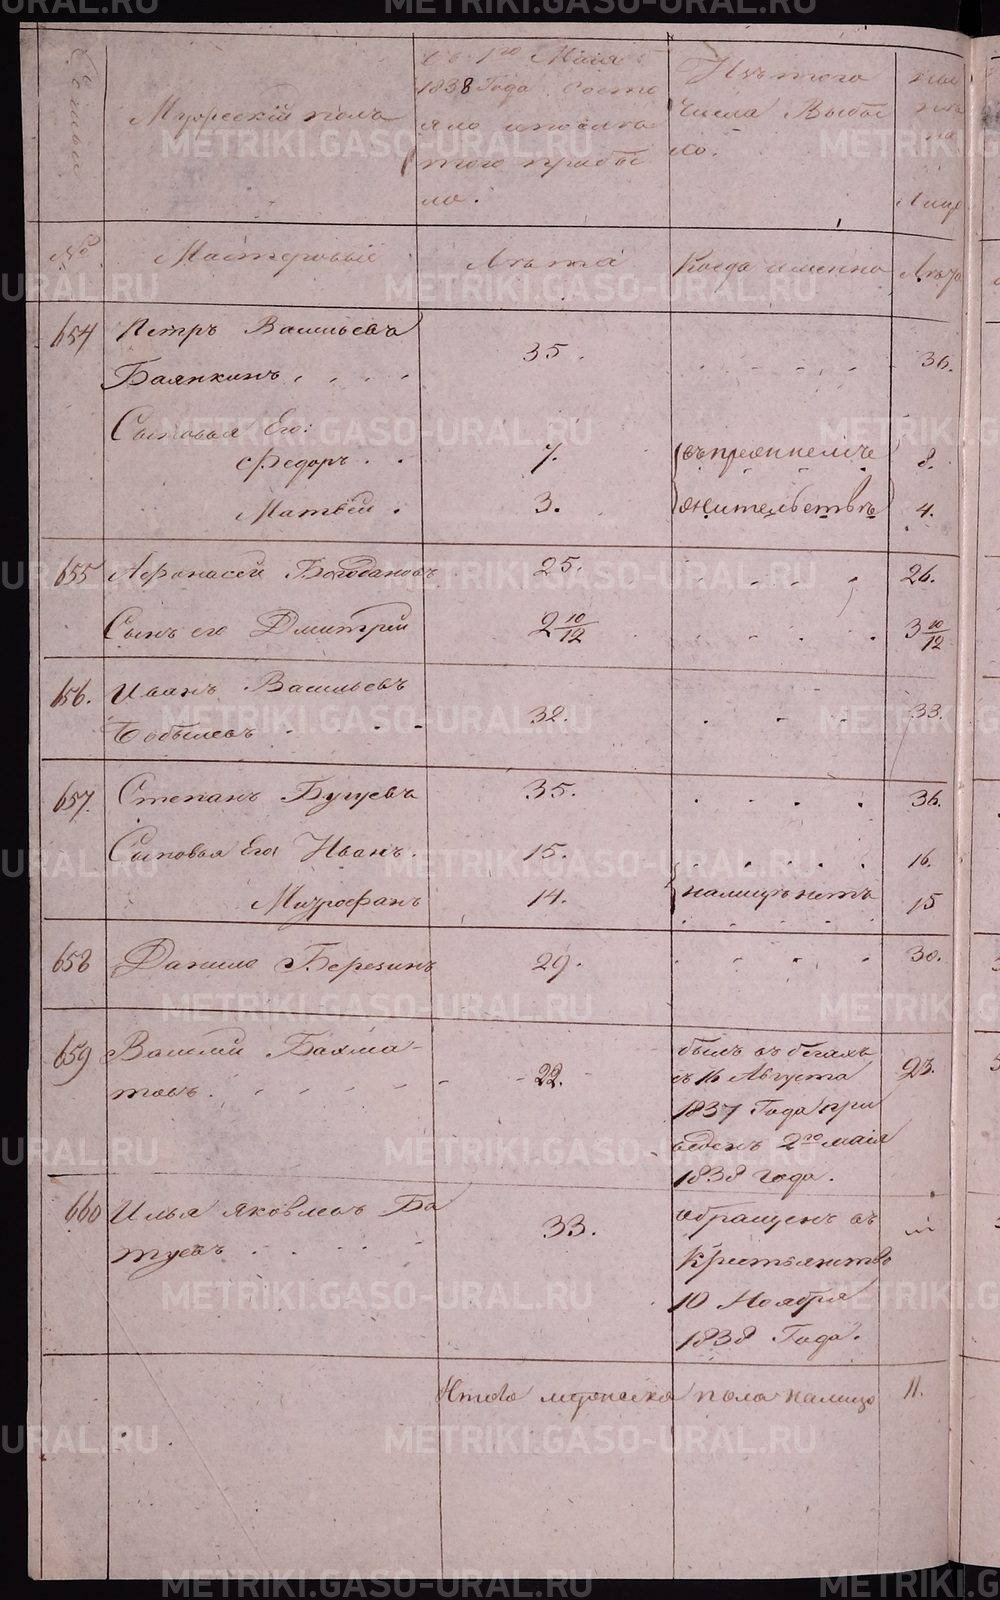 Семьи
Мужескій полъ
Съ 1го Маія
1838 Года состо
яло и послѣ
того прибы
ло.
Изъ того
Числа Выбы
ло.
Ны
нѣ
на
Лицо
№
Мастеровые
Лѣта
Когда именно
Лѣта
654
Петръ Васильевъ
Баянкинъ
35.
36.
Сыновья Его:
Федоръ
7.
въ прежнемъ
8.
Матвѣй
3.
жительствѣ
4.
655
Афонасей Богдановъ
25.
26.
Сынъ его Дмитрей
2 10/12
3 10/12
656.
Иванъ Васильевъ
Бобылевъ
32.
33.
657.
Степанъ Бушуевъ
35.
36.
Сыновья Его Иванъ.
15.
16.
Митрофанъ
14.
налицо нетъ
15
658
Данило Березинъ
29.
30.
659
Василей Бахма-
товъ.
22.
былъ въ бегахъ
съ 16 Августа
1837 Года при
веденъ 2го маія
1838 года.
23.
660
Илья Яковлевъ Ба
туевъ
33.
обращенъ въ
крестьянство
10 Ноября
1838 Года.
Итого мужеска пола налицо
11.
METRIKI.GASO-URAL.RU